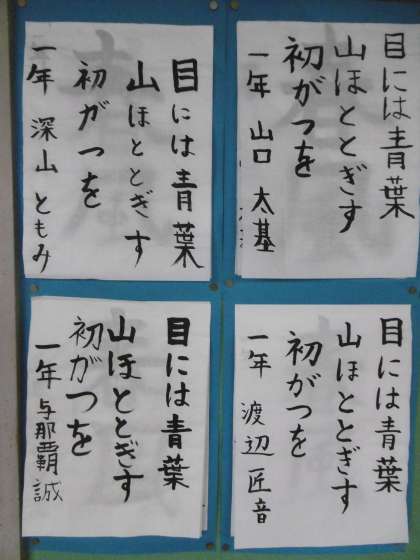 目には青葉
山ほととぎす
初がつを
一年 山口 太基
目には青葉
山ほととぎす
初がつを
一年 深山 ともみ
目には青葉
山ほととぎす
初がつを
一年 渡辺 匠音
目には青葉
山ほととぎす
初がつを
一年 与那覇 誠